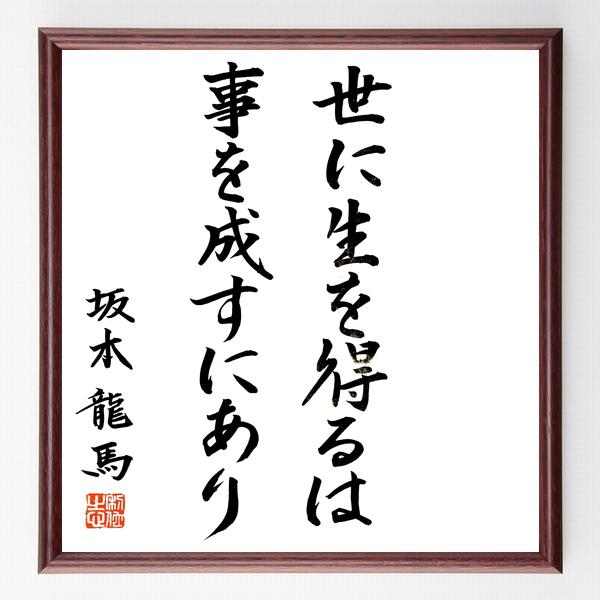 世に生を得るは
事を成すにあり
坂本龍馬